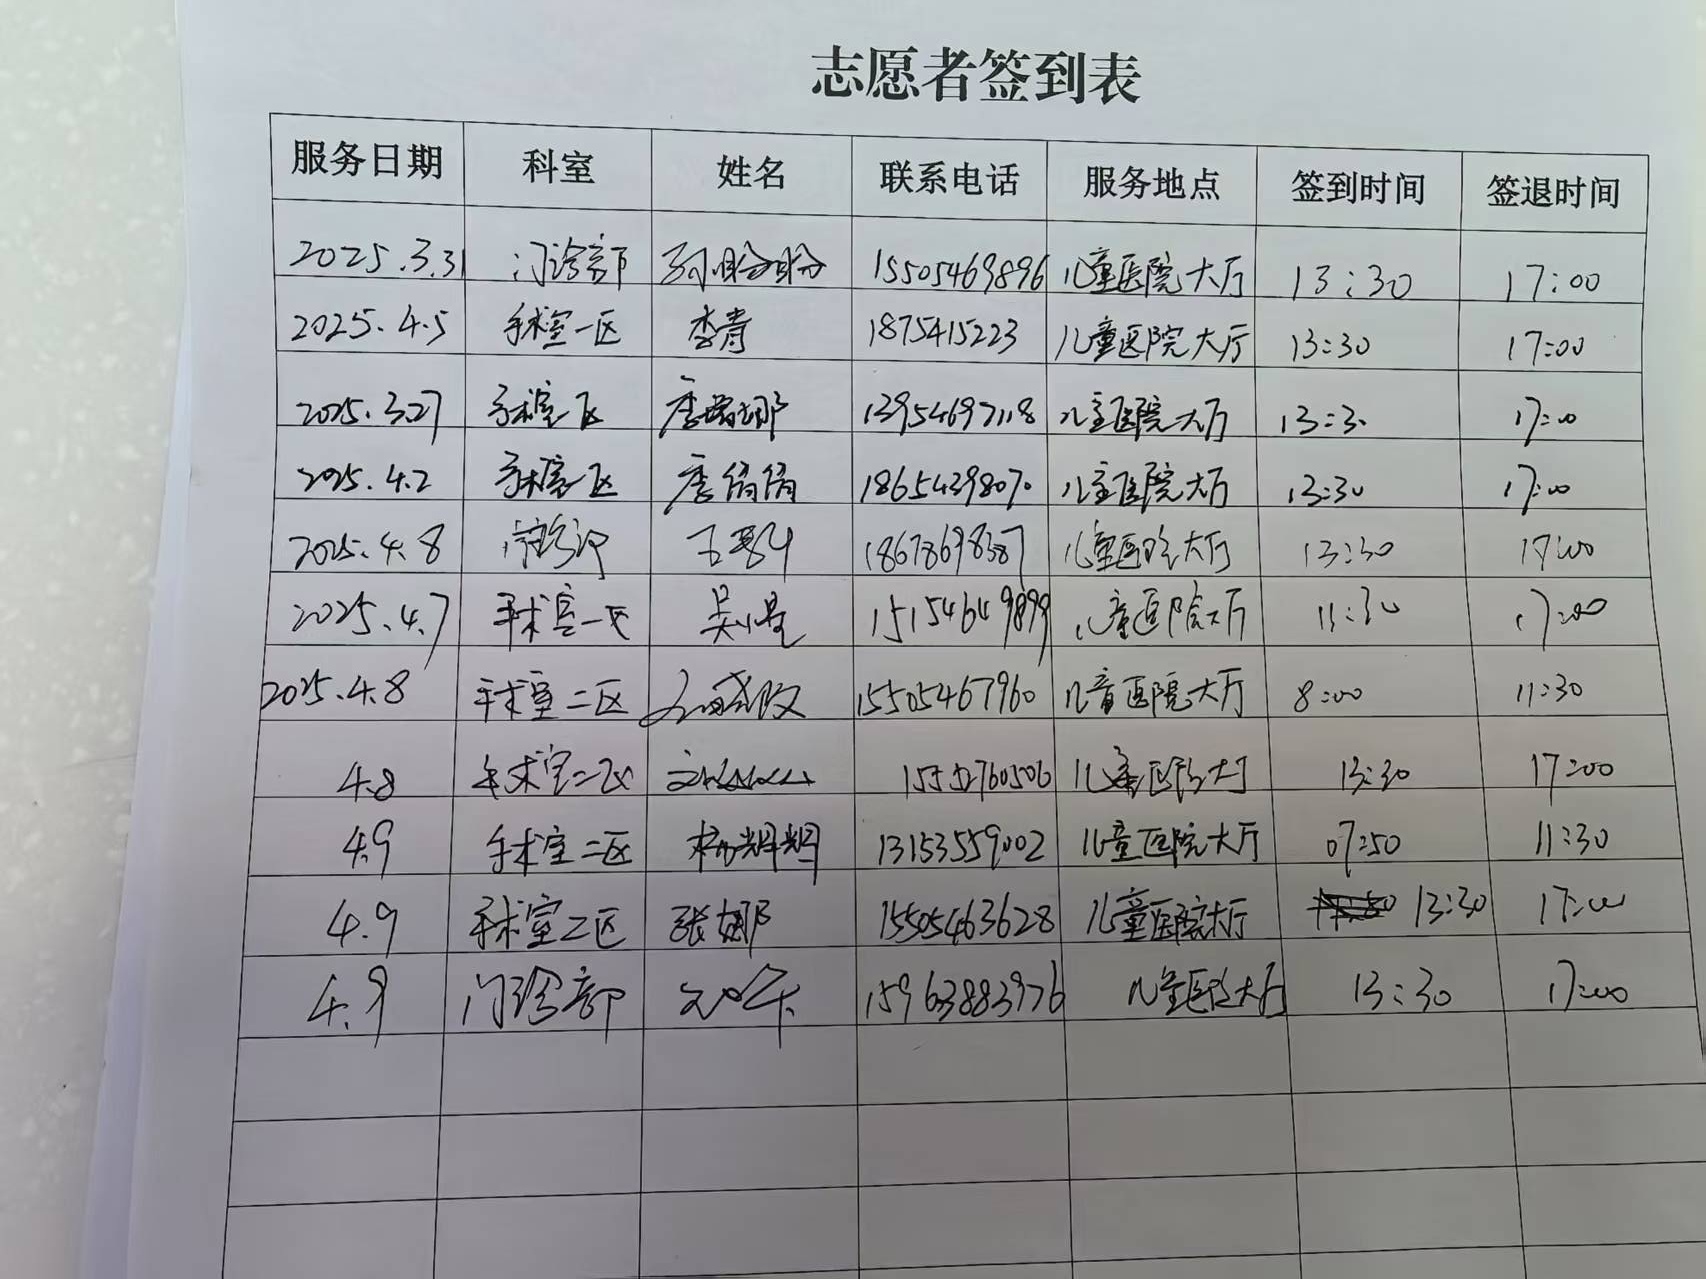 志愿者签到表
服务日期 科室 姓名 联系电话 服务地点 签到时间 签退时间
2025.3.31 门诊部 孙盼盼 15505469896 儿童医院大厅 13:30 17:00
2025.4.5 手术室一区 李青 1875415223 儿童医院大厅 13:30 17:00
2025.3.27 手术室一区 13954697118 儿童医院大厅 13:30 17:00
2025.4.2 手术室一区 18654398070 儿童医院大厅 13:30 17:00
2025.4.8 18678698387 儿童医院大厅 13:30 17:00
2025.4.7 手术室一区 15154649899 儿童医院大厅 17:00
2025.4.8 手术室二区 15505467960 儿童医院大厅 8:00 11:30
4.8 手术室二区 儿童医院大厅 13:30 17:00
4.9 手术室二区 杨辉辉 13153559002 儿童医院大厅 07:50 11:30
4.9 手术室二区 张娜 15505463628 儿童医院大厅 13:30 17:00
4.9 门诊部 15963883976 儿童医院大厅 13:30 17:00